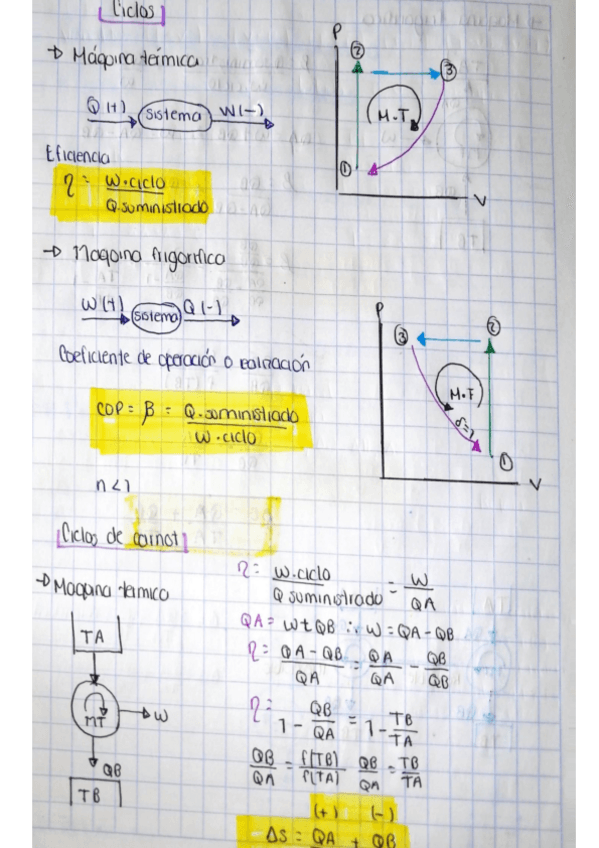 Ciclos
→ Máquina térmica
Q (+) Sistema W(-)
P
②
③
M.T
①
V
Eficiencia
η = W.ciclo / Q.suministrado
→ Maquina frigorifica
W (+) Sistema Q (-)
P
③
②
M.F
①
V
Coeficiente de operación o
COP = β = Q.suministrado / W.ciclo
n < 1
Ciclos de carnot
→ Maquina termica
TA
MT
W
QB
TB
η = W.ciclo / Q suministrado = W / QA
QA = W + QB ∴ W = QA - QB
η = QA - QB / QA = QA / QA - QB / QB
η = 1 - QB / QA = 1 - TB / TA
QB / QA = f(TB) / f(TA) QB / QA = TB / TA
(+) (-)
ΔS = QA + QB